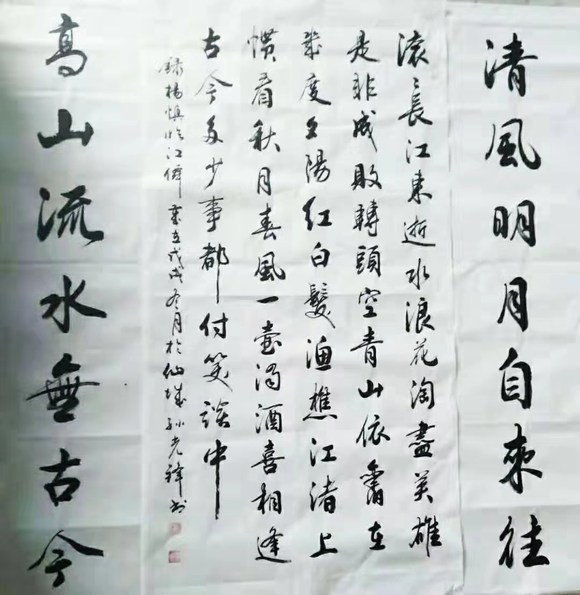 清風明月自來往
滚〻長江東逝水浪花淘盡英雄
是非成敗轉頭空青山依舊在
幾度夕陽紅白髮漁樵江渚上
慣看秋月春風一壺濁酒喜相逢
古今多少事都付笑談中
錄楊慎臨江僊 歲在戊戌冬月於仙城孙光书
高山流水無古今